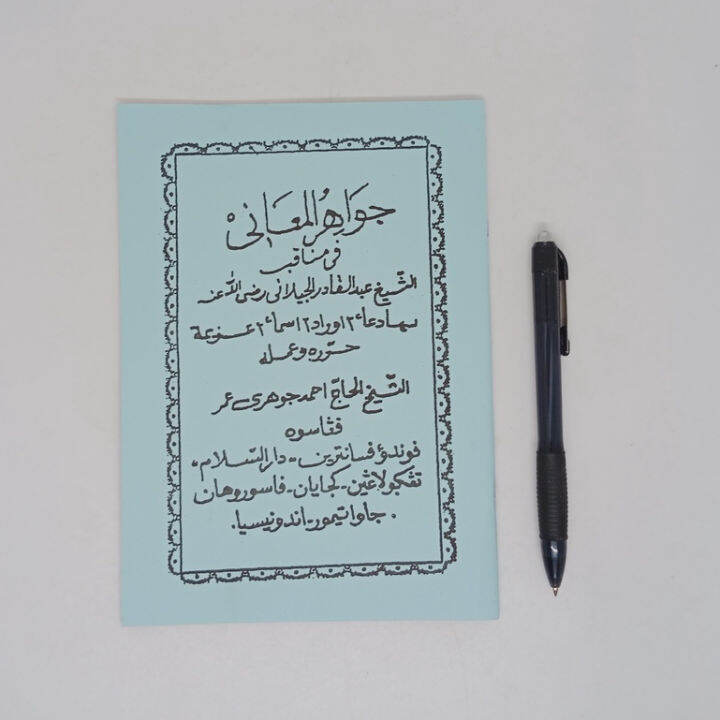 جَوَاهِرُ الْمَعَانِى
فى مناقب
الشّيخ عبد القادر الجيلانى رضى الله عنه
بهادعا٢ اوراد٢ اسما٢ عزيمة
حرره وعمله
الشّيخ الحاجّ احمد جوهرى عمر
فڠاسوه
فوندؤ فسانترين - دار السّلام -
تڠكولاڠين - كجايان - فاسوروهان
. جاوا تيمور - اندونيسيا .